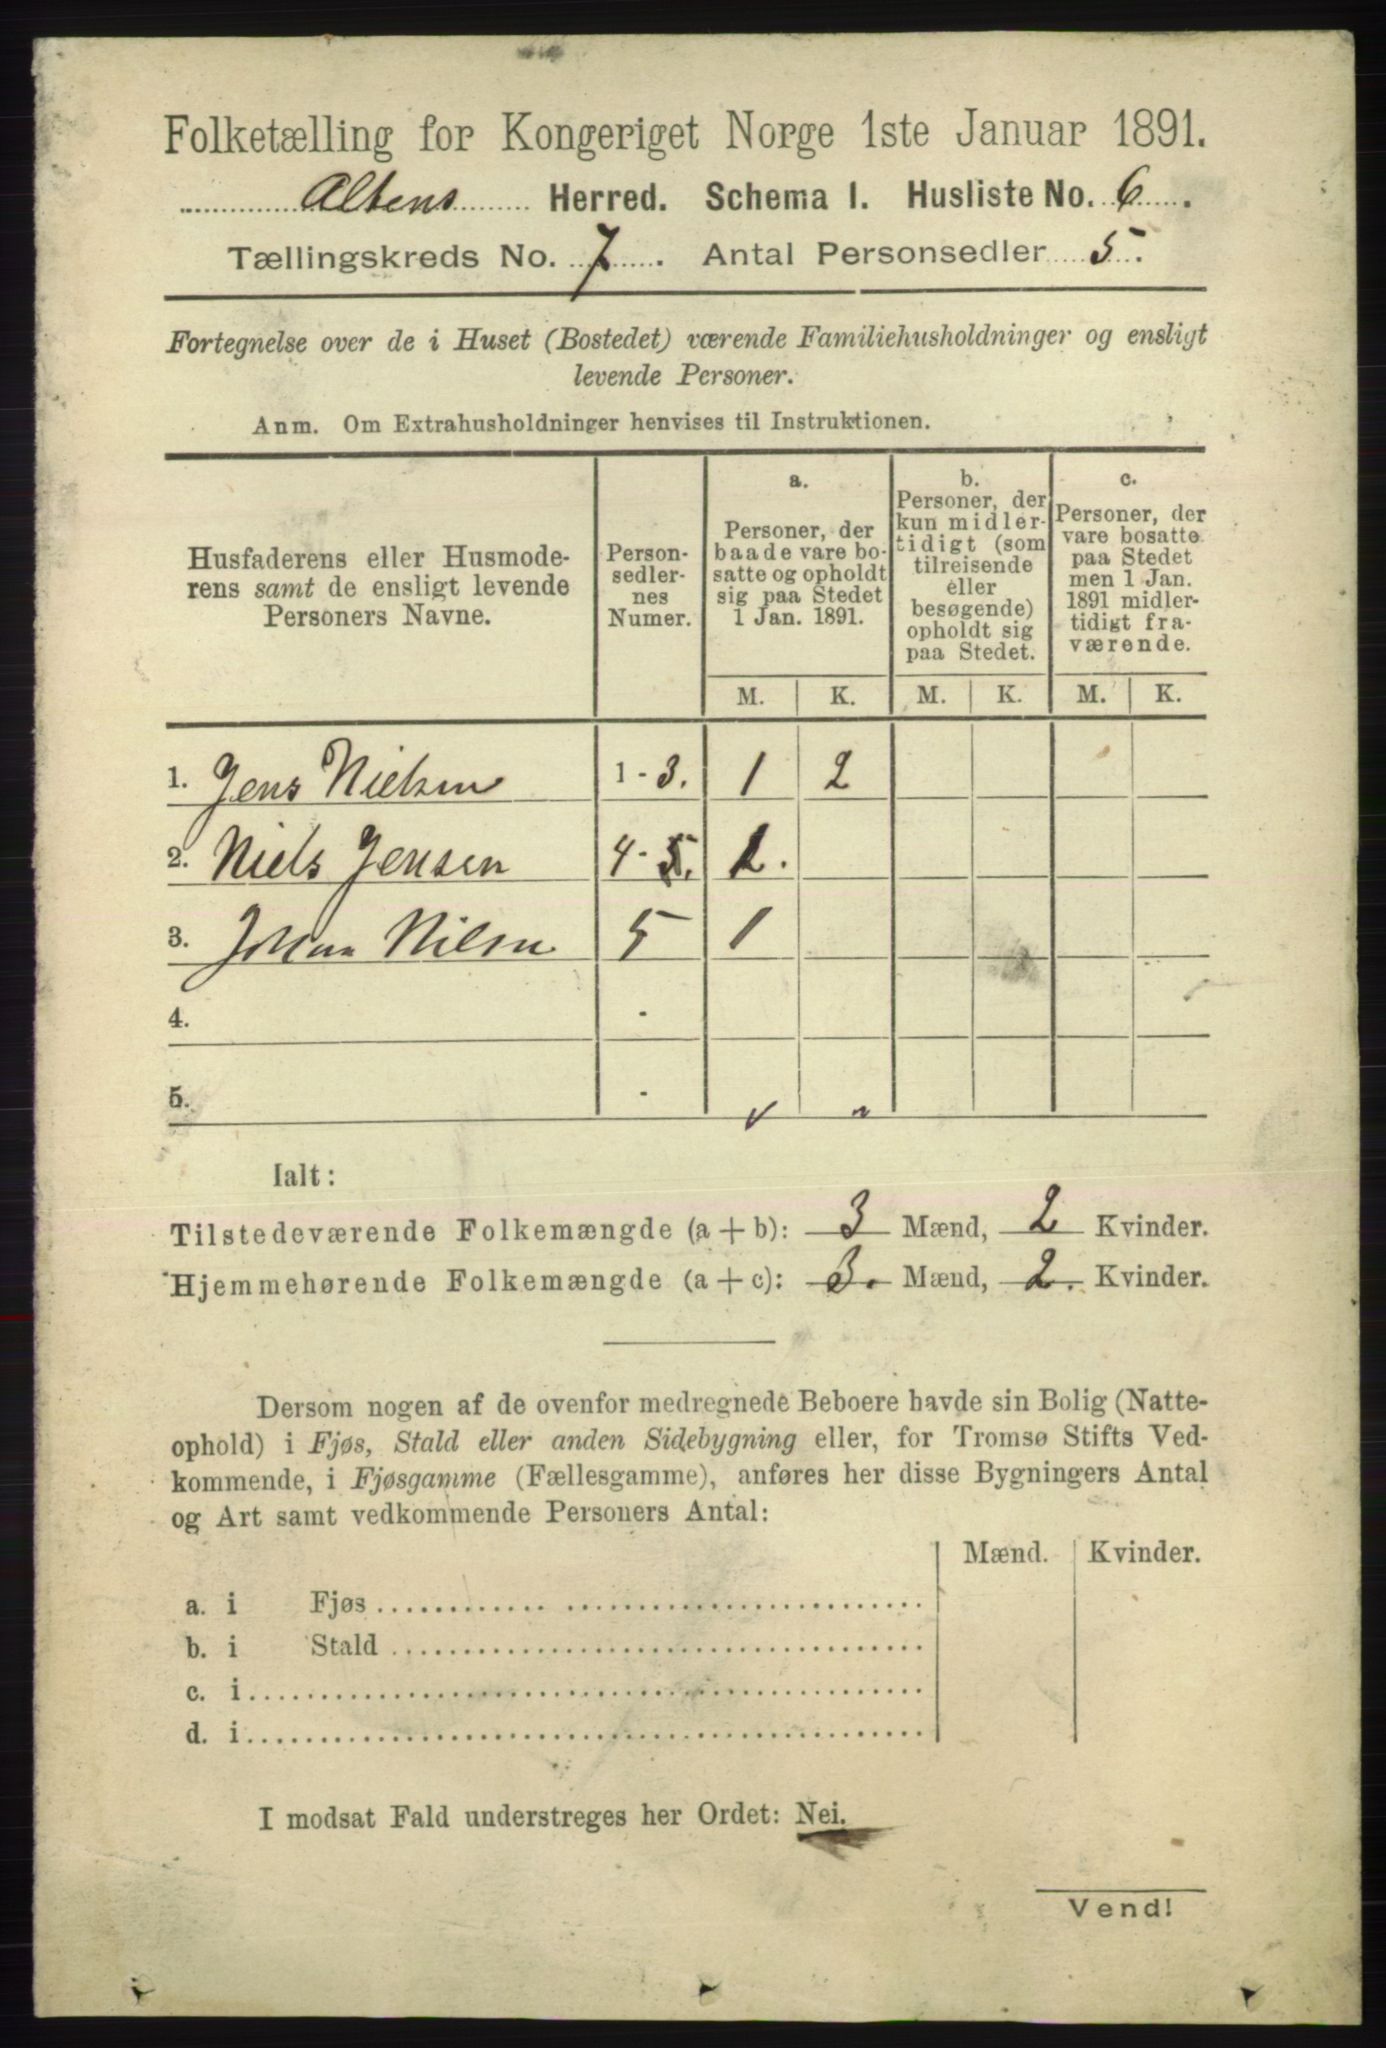 Folketælling for Kongeriget Norge 1ste Januar 1891.
Altens Herred. Schema I. Husliste No. 6.
Tællingskreds No. 7. Antal Personsedler 5.
Fortegnelse over de i Huset (Bostedet) værende Familiehusholdninger og ensligt
levende Personer.
Anm. Om Extrahusholdninger henvises til Instruktionen.
Husfaderens eller Husmode-
rens samt de ensligt levende
Personers Navne.
Person-
sedler-
nes
Numer.
a.
Personer, der
baade vare bo-
satte og opholdt
sig paa Stedet
1 Jan. 1891.
b.
Personer, der
kun midler-
tidigt (som
tilreisende
eller
besøgende)
opholdt sig
paa Stedet.
c.
Personer, der
vare bosatte
paa Stedet
men 1 Jan.
1891 midler-
tidigt fra-
værende.
M. K. M. K. M. K.
1. Jens Nielsen 1-3. 1 2
2. Niels Jensen 4-5. 1.
3. Johan Nilsen 5 1
4. -
5. -
Ialt:
Tilstedeværende Folkemængde (a + b): 3 Mænd, 2 Kvinder.
Hjemmehørende Folkemængde (a + c): 3. Mænd, 2. Kvinder.
Dersom nogen af de ovenfor medregnede Beboere havde sin Bolig (Natte-
ophold) i Fjøs, Stald eller anden Sidebygning eller, for Tromsø Stifts Ved-
kommende, i Fjøsgamme (Fællesgamme), anføres her disse Bygningers Antal
og Art samt vedkommende Personers Antal:
Mænd. Kvinder.
a. i Fjøs
b. i Stald
c. i
d. i
I modsat Fald understreges her Ordet: Nei.
Vend!